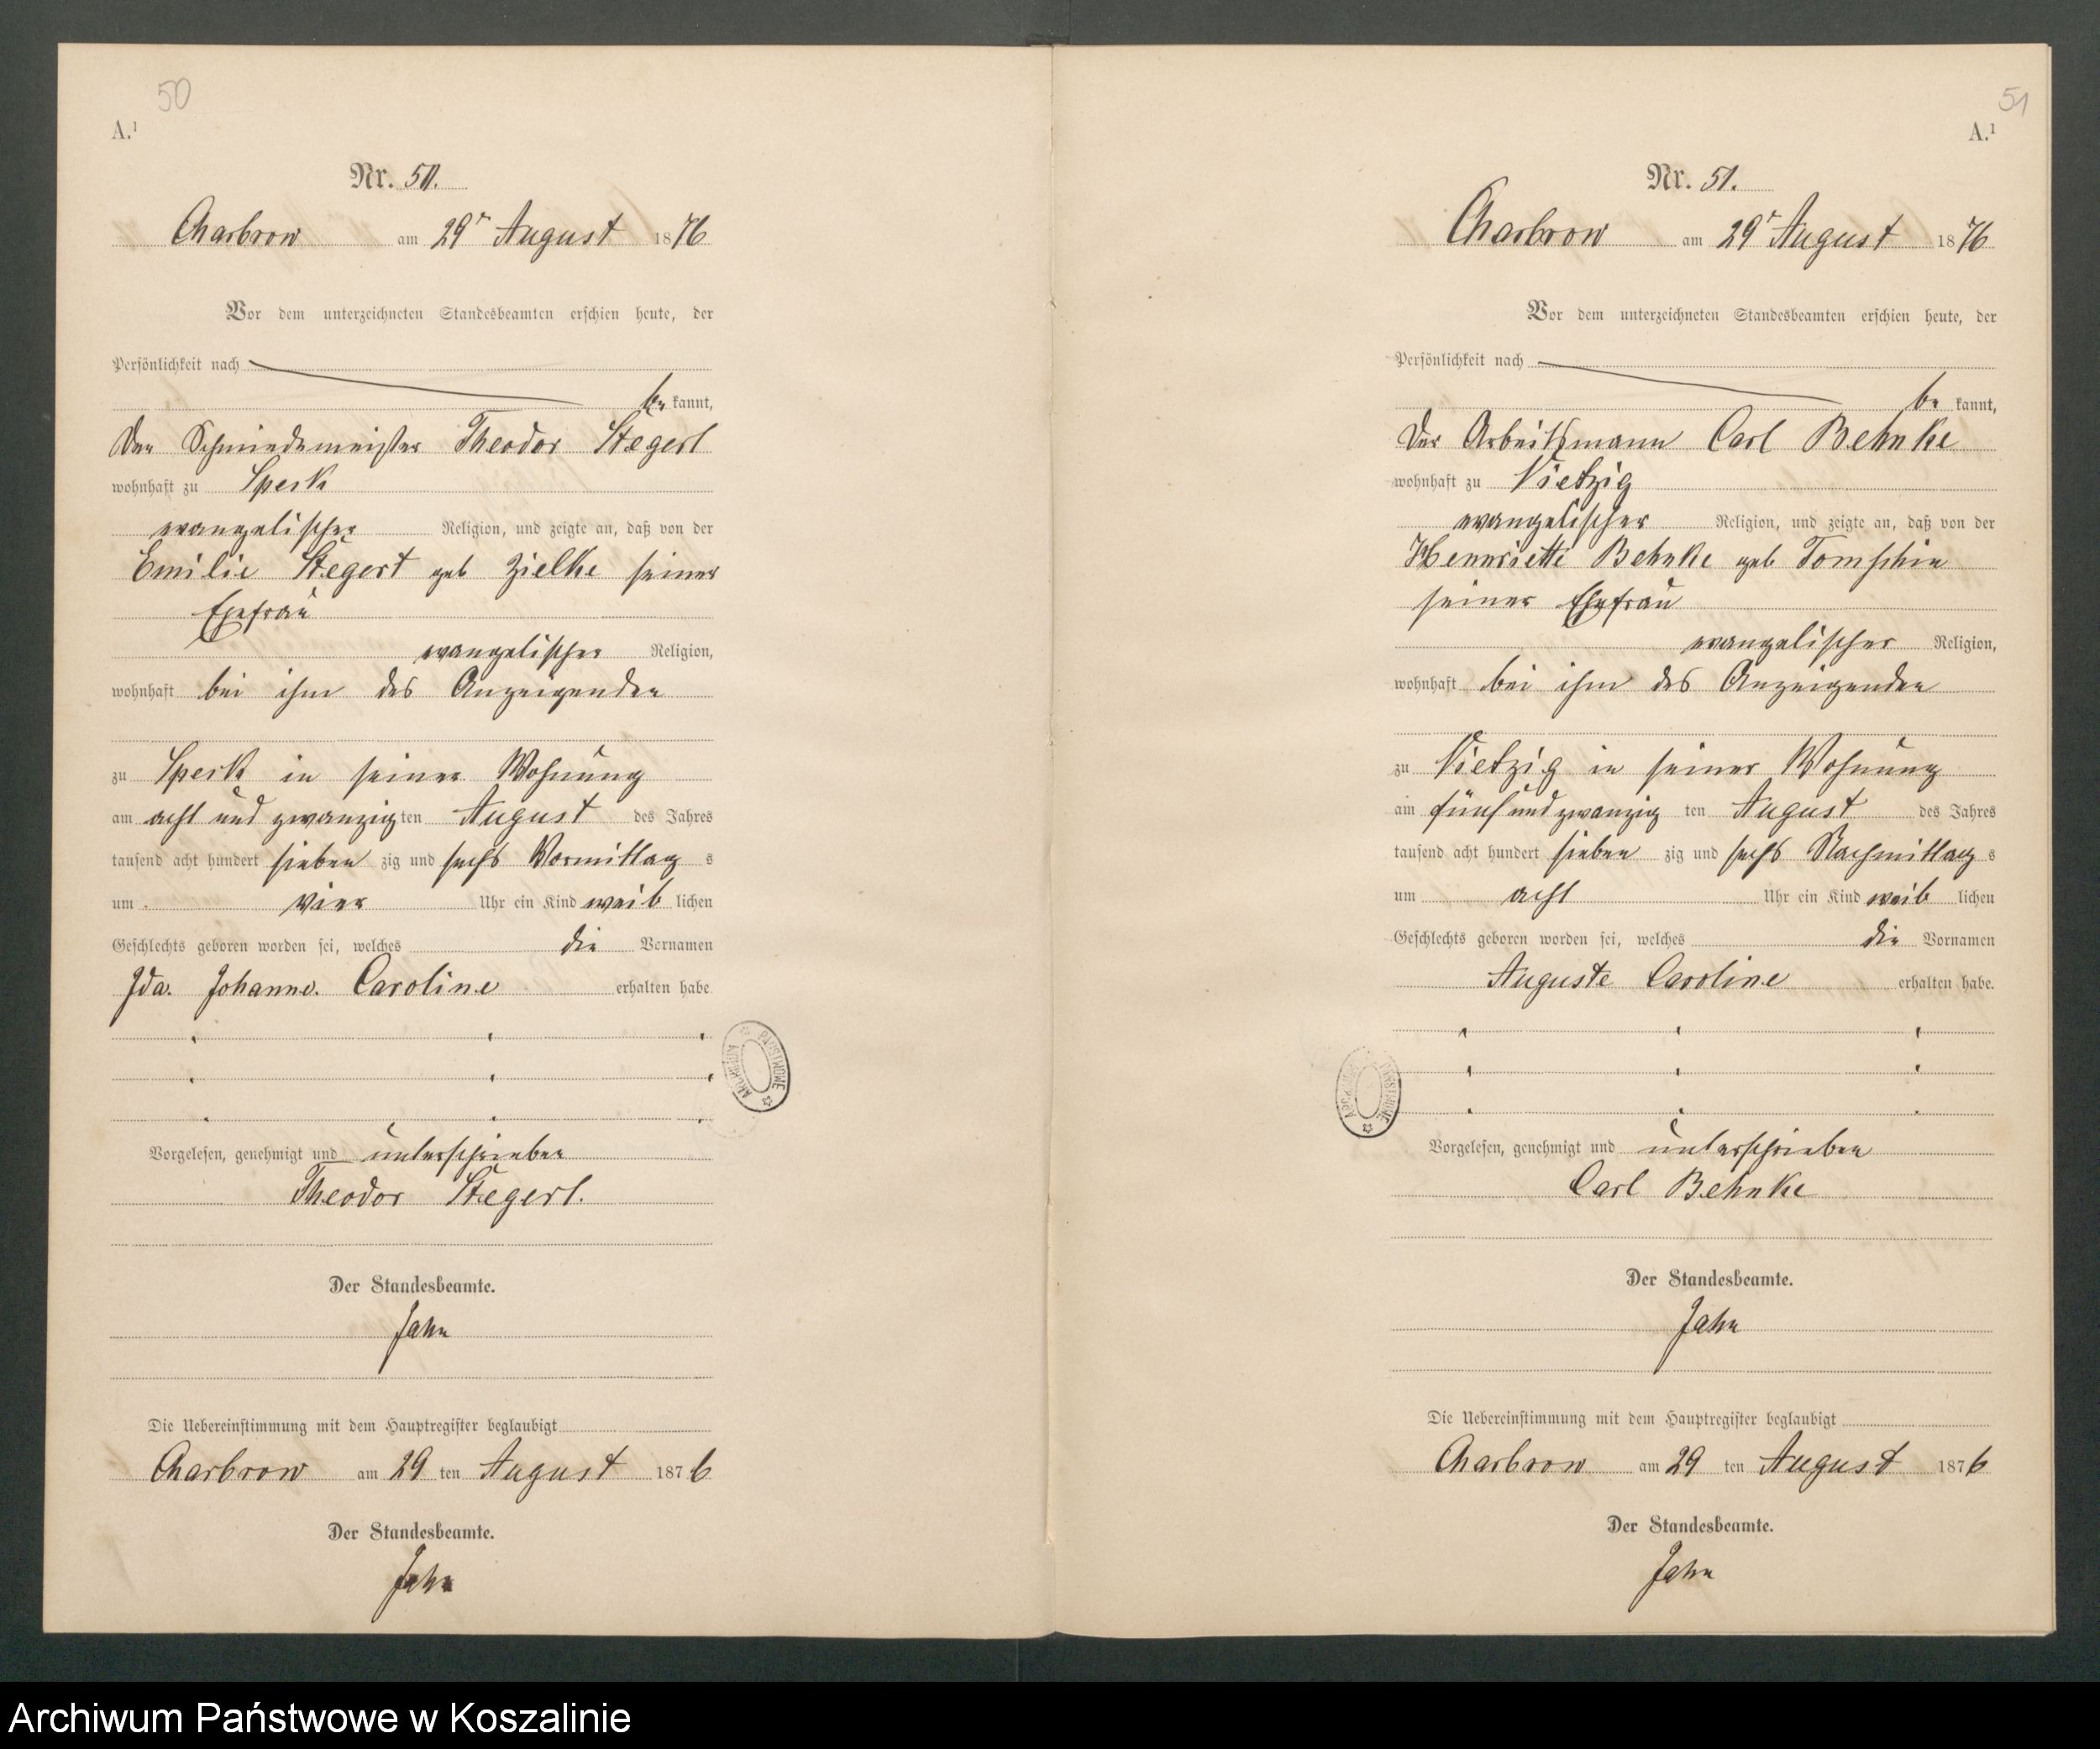 50
A.¹
Nr. 50.
Charbrow am 29ᵗ August 1876
Vor dem unterzeichneten Standesbeamten erschien heute, der
Persönlichkeit nach
be kannt,
Der Schmiedemeister Theodor Stegert
wohnhaft zu Speck
evangelischer Religion, und zeigte an, daß von der
Emilie Stegert geb Zielke seiner
Ehefrau
evangelischer Religion,
wohnhaft bei ihm des Anzeigenden
zu Speck in seiner Wohnung
am acht und zwanzig ten August des Jahres
tausend acht hundert sieben zig und sechs Vormittag s
um vier Uhr ein Kind weib lichen
Geschlechts geboren worden sei, welches die Vornamen
Ida. Johanne. Caroline erhalten habe
Vorgelesen, genehmigt und unterschrieben
Theodor Stegert.
Der Standesbeamte.
Jahn
Die Uebereinstimmung mit dem Hauptregister beglaubigt
Charbrow am 29 ten August 1876
Der Standesbeamte.
Jahn
51
A.¹
Nr. 51.
Charbrow am 29ᵗ August 1876
Vor dem unterzeichneten Standesbeamten erschien heute, der
Persönlichkeit nach
be kannt,
Der Arbeitsmann Carl Behnke
wohnhaft zu Vietzig
evangelischer Religion, und zeigte an, daß von der
Hennriette Behnke geb Tomschin
seiner Ehefrau
evangelischer Religion,
wohnhaft bei ihm des Anzeigenden
zu Vietzig in seiner Wohnung
am fünf und zwanzig ten August des Jahres
tausend acht hundert sieben zig und sechs Nachmittag s
um acht Uhr ein Kind weib lichen
Geschlechts geboren worden sei, welches die Vornamen
Auguste Caroline erhalten habe.
Vorgelesen, genehmigt und unterschrieben
Carl Behnke
Der Standesbeamte.
Jahn
Die Uebereinstimmung mit dem Hauptregister beglaubigt
Charbrow am 29 ten August 1876
Der Standesbeamte.
Jahn
Archiwum Państwowe w Koszalinie